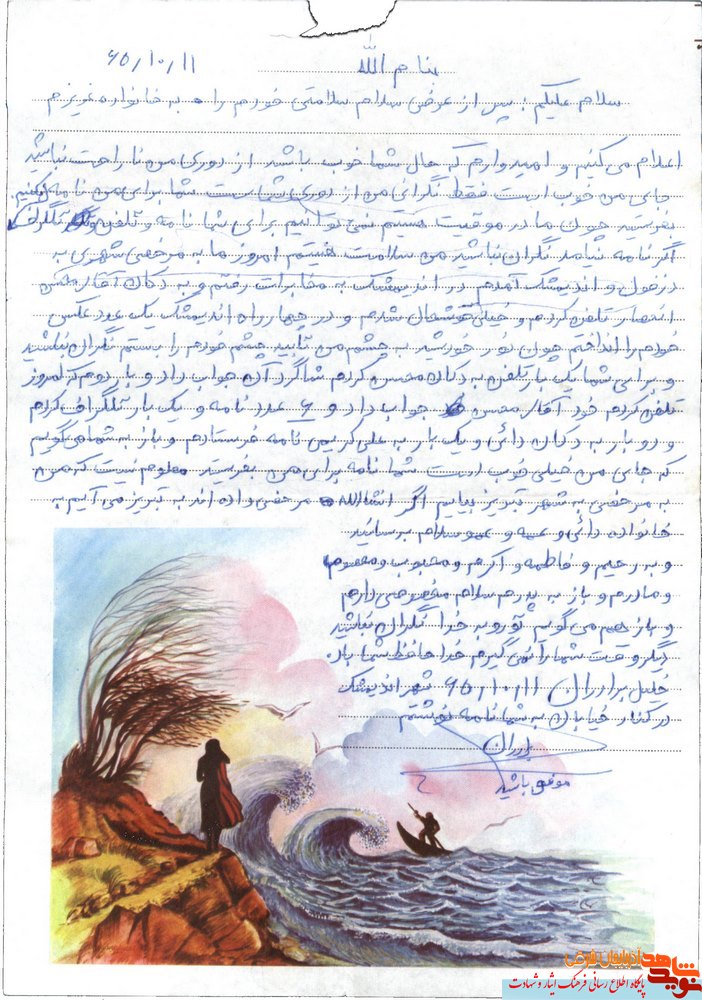 بنام الله
۶۵/۱۰/۱۱
سلام علیکم: پس از عرض سلام سلامتی خودم را به خانواده عزیزم
اعلام می کنیم و امیدوارم که حال شما خوب باشد از دوری من ناراحت نباشید
جای من خوب است فقط نگرانی من از دوری شماست شما برای من نامه
بفرستید چون ما در موقعیت هستیم نمی توانیم برای شما نامه و تلفن تلگراف کنیم
اگر نامه نیامد نگران نباشید من سلامت هستم امروز ما به مرخصی شهری به
دزفول و اندیمشک آمدم در اندیمشک به مخابرات رفتم و به دکان آقای محسن
انصار تلفن کردم و خیلی خوشحال شدم و در چهار راه اندیمشک یک عدد عکس
خودم را انداختم چون نور خورشید به چشم من تابید چشم خودم را بستم نگران نباشید
و برای شما یک بار تلفن به دکان محسن کردم شاگرد آن جواب داد و بار دوم که امروز
تلفن کردم خود آقای محسن جواب داد و ۶ عدد نامه و یک بار تلگراف کردم
و دو بار به دکان دائی و یک بار به علی کریمی نامه فرستادم و باز به شما می گویم
که جای من خیلی خوب است شما نامه برای من بفرستید معلوم نیست که من
به مرخصی به شهر تبریز بیایم اگر انشاالله مرخصی داده اند به تبریز می آیم به
خانواده دائی و عمه و عمو سلام برسانید
و به رحیم و فاطمه و اکرم و محبوب و معصوم
و مادرم و باز به پدرم سلام مخصوصی دارم
و باز هم می گویم تو رو به خدا نگران نباشید
دیگر وقت شما را نمی گیرم خدا حافظ شما باد.
خلیل برادران ۶۵/۱۰/۱۱ شهر اندیمشک
در کنار خیابان به شما نامه نوشتم
برادران
موفق باشید
نوید شاهد
آذربایجان شرقی
پایگاه اطلاع رسانی فرهنگ ایثار و شهادت